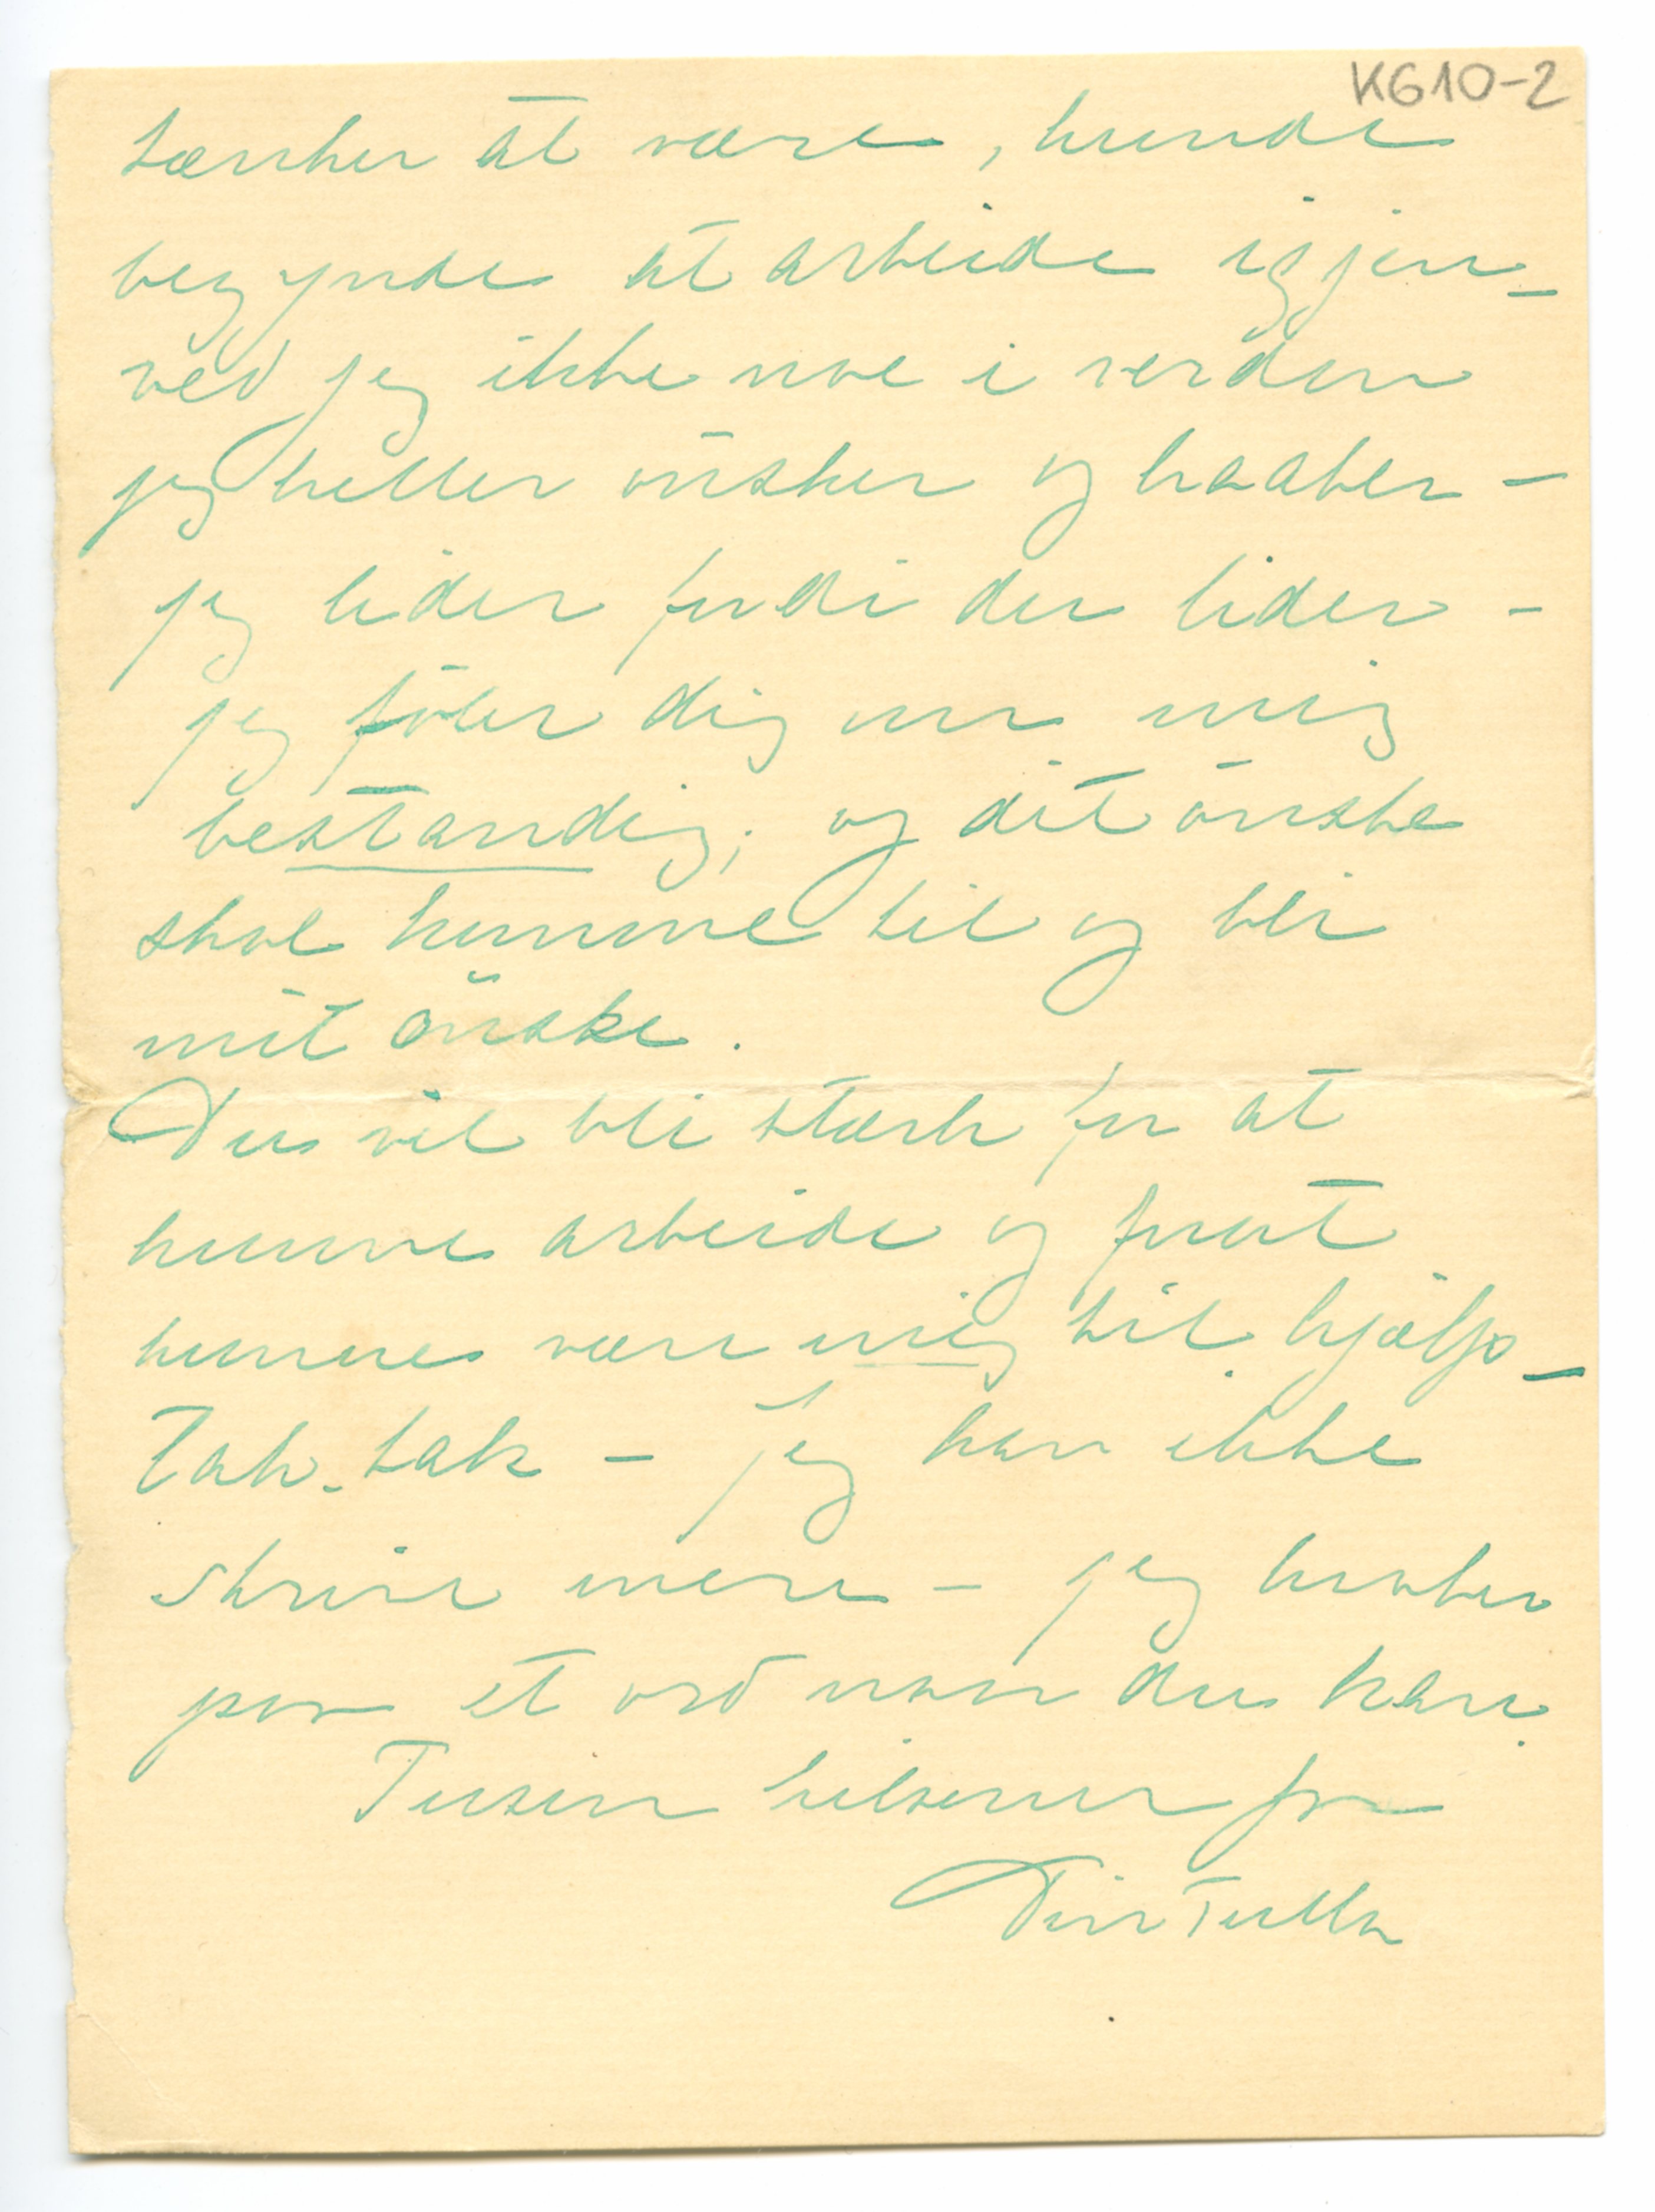 K610-2
tænker at være, kunde
begynde at arbeide igjen –
ved jeg ikke noe i verden
jeg heller ønsker og haaber –
jeg lider fordi du lider –
jeg føler dig om mig
bestandig; og dit ønske
skal komme til og bli
mit ønske.
Du vil bli stærk for at
kunne arbeide og forat
kunne være mig til hjælp –
Tak. tak – jeg kan ikke
skrive mere – jeg haaber
paa et ord naar du kan.
Tusen hilsener fra
Din Tulla